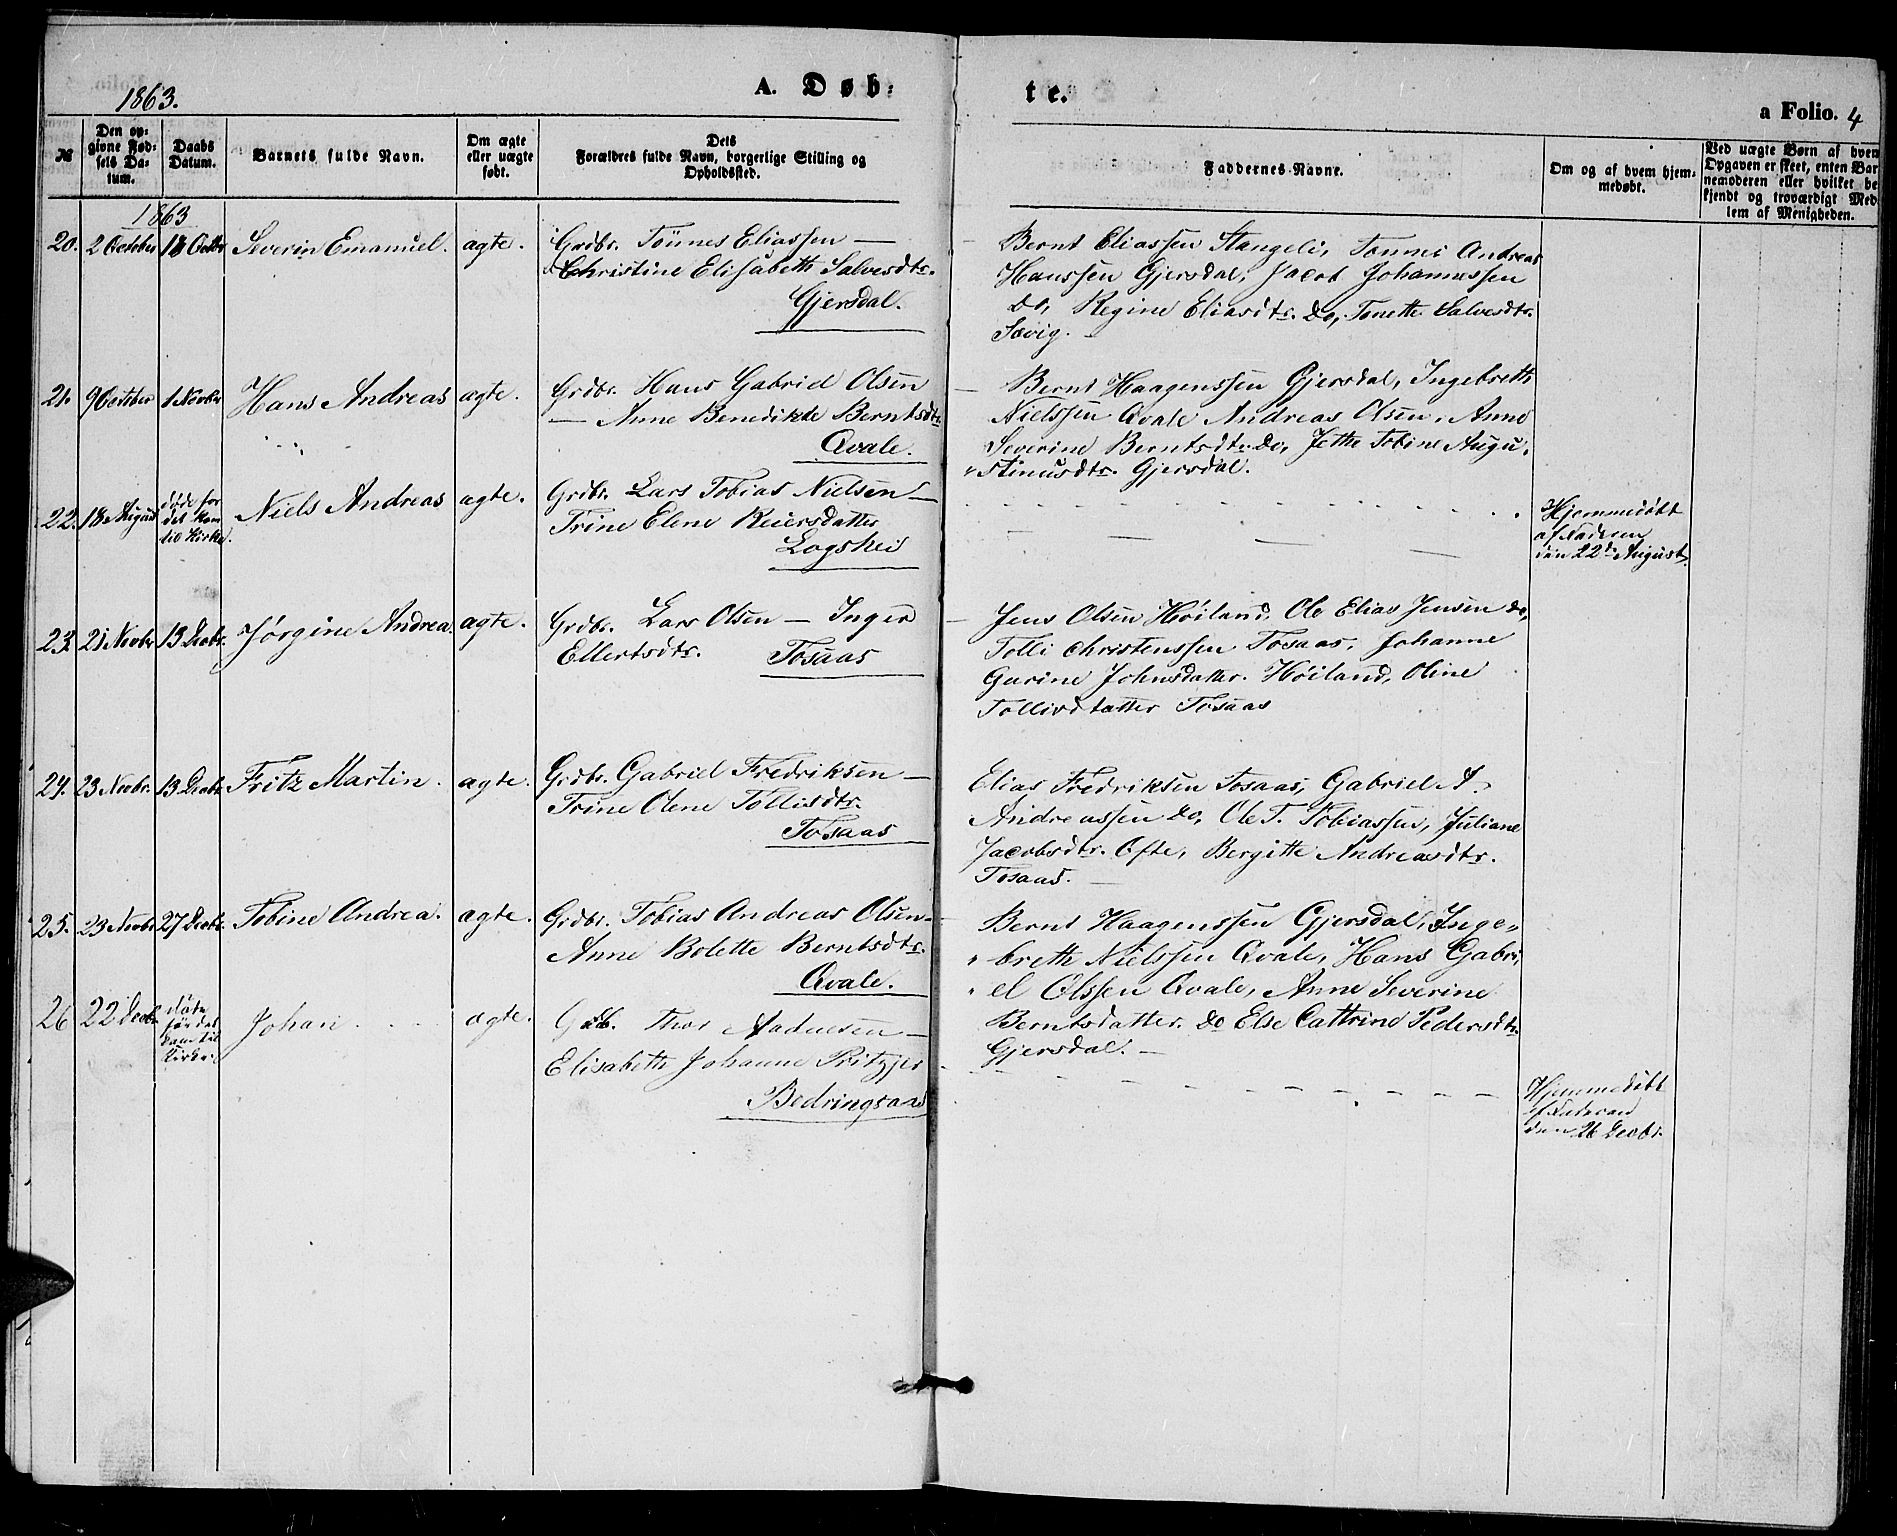 1863.
A. Døb-
te.
a Folio. 4
№
Den op-
givne Fød-
sels Da-
tum.
Daabs
Datum.
Barnets fulde Navn.
Om ægte
eller uægte
født.
Dets
Forældres fulde Navn, borgerlige Stilling og
Opholdssted.
Faddernes Navne.
Om og af hvem hjem-
medøbt.
Ved uægte Børn af hvem
Opgaven er skeet, enten Bar-
nemoderen eller hvilket be-
kjendt og troværdigt Med-
lem af Menigheden.
1863
20. 2 October 18 Octbr Severin Emanuel. ægte.
Grdbr. Tønnes Eliassen —
Christine Elisabeth Salvesdtr.
Gjersdal.
Bernt Eliassen Stangeli, Tønnes Andreas
Hanssen Gjersdal, Jacob Johannessen
do, Regine Eliasdtr. do, Tonette Salvesdtr.
Søvig.
21. 9 October 1 Novbr Hans Andreas ægte.
Grdbr. Hans Gabriel Olsen
— Anne Benedikte Berntsdtr.
Qvale.
Bernt Haagenssen Gjersdal, Ingebreth
Nielssen Qvale Andreas Olsen, Anne
Severine Berntsdtr. do, Jethe Tobine Augu-
stinusdtr. Gjersdal.
22. 18 August døde før
det kom
til Kirke.
Niels Andreas ægte.
Grdbr. Lars Tobias Nielsen —
Trine Elene Reiersdatter
Logshei
Hjemmedøbt
af Faderen
den 22de August.
23. 21 Novbr 13 Decbr. Jørgine Andrea. ægte.
Grdbr. Lars Olsen — Inger
Ellertsdtr. Tosaas
Jens Olsen Høiland, Ole Elias Jensen do,
Tolli Christenssen Tosaas, Johanne
Gurine Johnsdatter. Høiland, Oline
Tollisdatter Tosaas
24. 23 Novbr. 13 Decbr. Fritz Martin. ægte.
Grdbr. Gabriel Fredriksen —
Trine Olene Tollisdtr.
Tosaas
Elias Fredriksen Tosaas, Gabriel A.
Andreassen do, Ole T. Tobiassen, Juliane
Jacobsdtr. Ofte, Bergitte Andreasdtr.
Tosaas. —
25. 23 Novbr 27 Decbr. Tobine Andrea. ægte.
Grdbr. Tobias Andreas Olsen —
Anne Bolette Berntsdtr.
Qvale.
Bernt Haagenssen Gjersdal, Inge-
breth Nielssen Qvale, Hans Gabri-
el Olssen Qvale, Anne Severine
Berntsdatter. do Else Cathrine Pedersdtr.
Gjersdal. —
26 22 Decbr døde
før det
kom til
Kirke.
Johan ægte.
Grdb. Thor Aadnesen —
Elisabeth Johanne Pritzjer
Bedringsaas
Hjemmedøbt
af Faderen
den 26 Decbr.